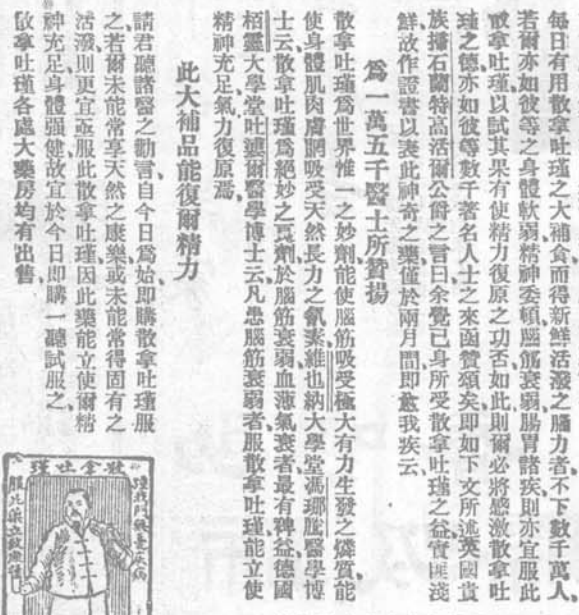 每日有用散拿吐瑾之大補食而得新鮮活潑之腦力者、不下數千萬人、
若爾亦如彼等之身體軟弱精神委頓腦筋衰弱腸胃諸疾則亦宜服此
散拿吐瑾以試其果有使精力復原之功否如此則爾必將感激散拿吐
瑾之德亦如彼等數千著名人士之來函贊頌矣即如下文所述英國貴
族播石蘭特高活爾公爵之言曰余覺己身所受散拿吐瑾之益實匪淺
鮮故作證書以表此神奇之藥僅於兩月間即愈我疾云、
爲一萬五千醫士所贊揚
散拿吐瑾爲世界惟一之妙劑能使腦筋吸受極大有力生發之燐質能
使身體肌肉膚膶吸受天然長力之氮素維也納大學堂馮瑯醫學博
士云散拿吐瑾爲絕妙之良劑於腦筋衰弱血薄氣衰者最有裨益德國
栢靈大學堂吐爾醫學博士云凡患腦筋衰弱者服散拿吐瑾能立使
精神充足氣力復原焉、
此大補品能復爾精力
請君聽諸醫之勸言自今日爲始即購散拿吐瑾服
之、若爾未能常享天然之康樂或未能常得固有之
活潑則更宜亟服此散拿吐瑾因此藥能立使爾精
神充足、身體强健、故宜於今日即購一聽試服之、
散拿吐瑾各處大藥房均有出售、
散拿吐瑾
服此藥立